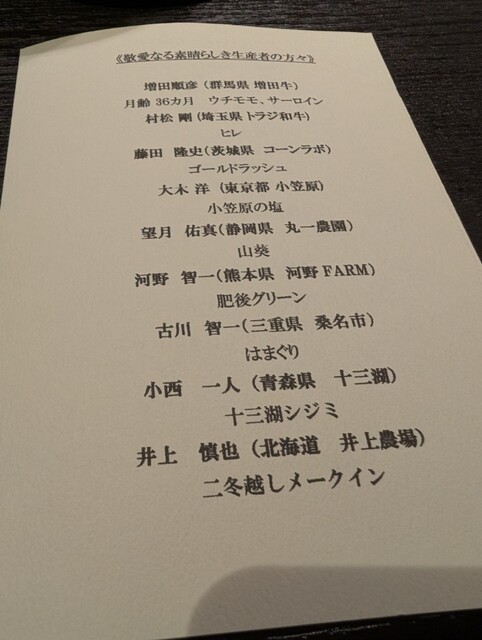 《敬愛なる素晴らしき生産者の方々》
増田順彦 (群馬県 増田牛)
月齢 36カ月 ウチモモ、サーロイン
村松 剛 (埼玉県 トラジ和牛)
ヒレ
藤田 隆史(茨城県 コーンラボ)
ゴールドラッシュ
大木 洋 (東京都 小笠原)
小笠原の塩
望月 佑真(静岡県 丸一農園)
山葵
河野 智一(熊本県 河野 FARM)
肥後グリーン
古川 智一(三重県 桑名市)
はまぐり
小西 一人 (青森県 十三湖)
十三湖シジミ
井上 慎也 (北海道 井上農場)
二冬越しメークイン